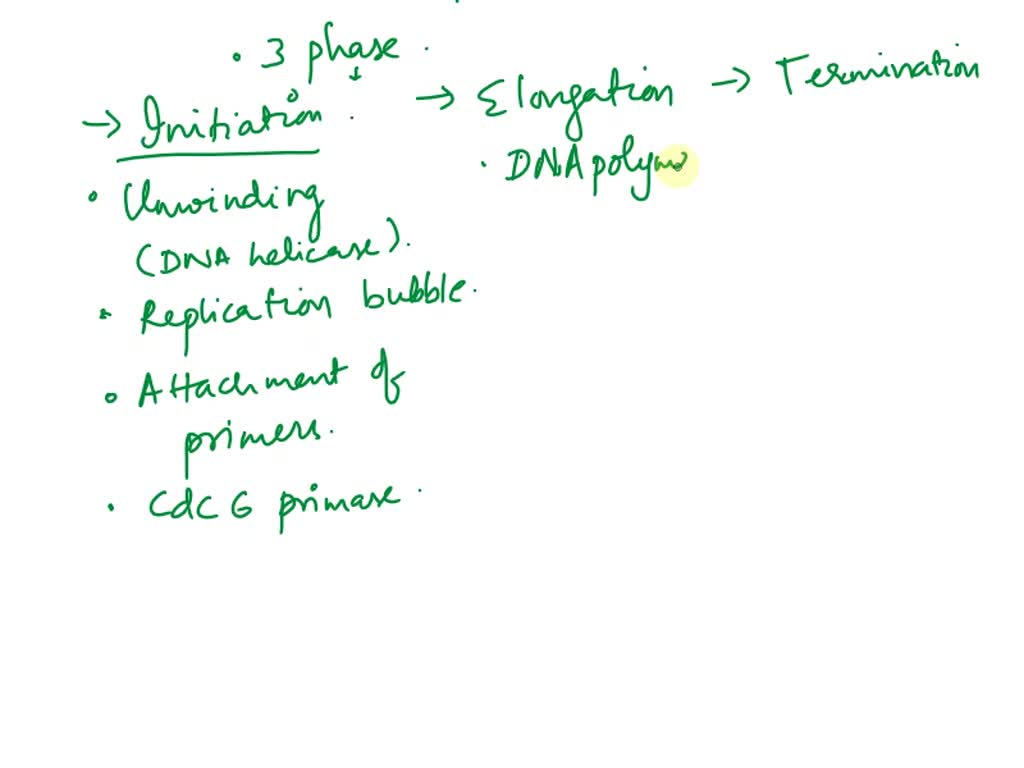 • 3 phase.
→ Initiation.
→ Elongation
→ Termination
• Unwinding
(DNA helicase).
• Replication bubble.
• Attachment of
primers.
• CdC 6 primase.
• DNA polym